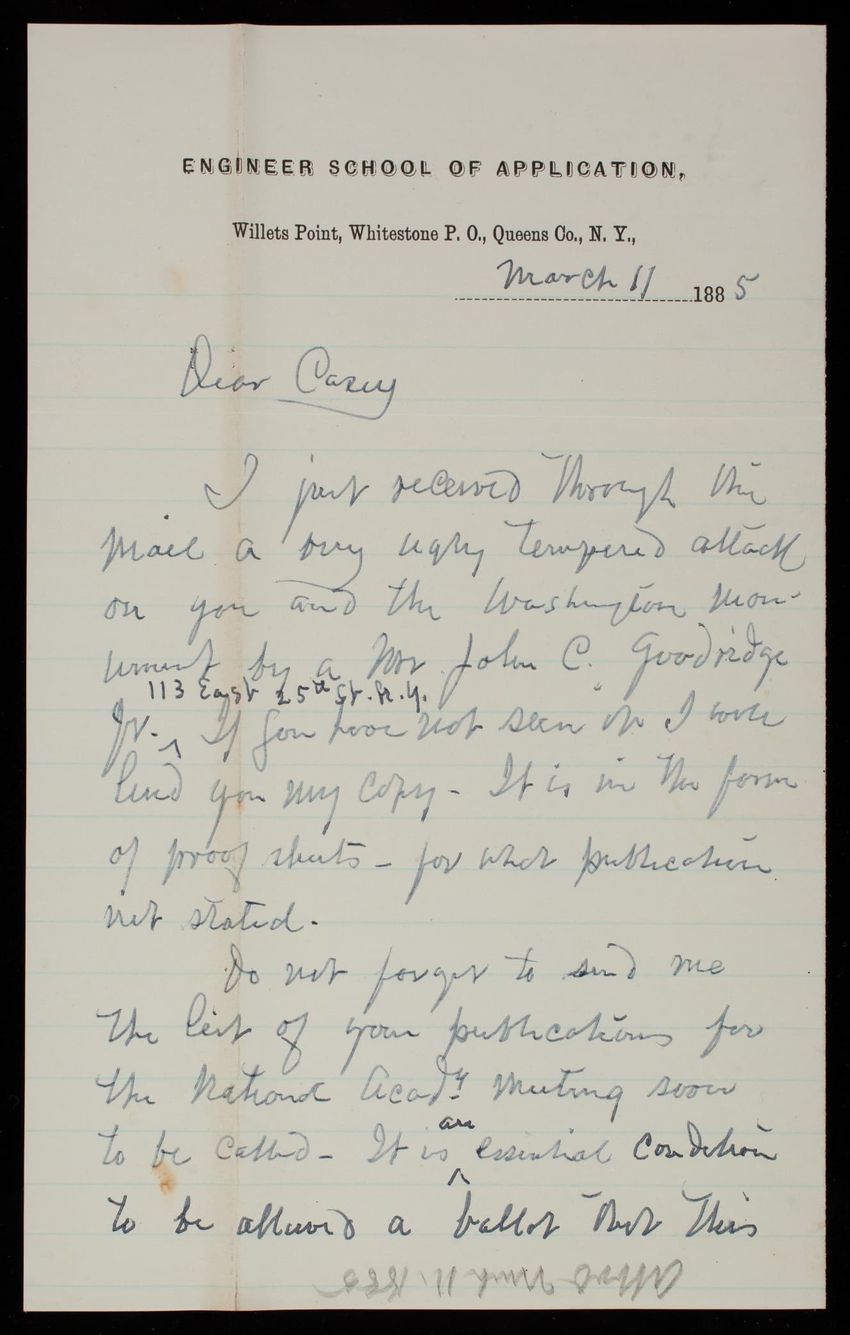 ENGINEER SCHOOL OF APPLICATION,
Willets Point, Whitestone P. O., Queens Co., N. Y.,
March 11 1885
Dear Casey
I just received through the
mail a very ugly tempered attack
on you and the Washington Mon-
ument by a Mr John C. Goodridge
113 East 25th St. N. Y.
Jr. ^ If you have not seen it I will
lend you my copy - It is in the form
of proof sheets - for what publication
not stated.
Do not forget to send me
the list of your publications for
the National Acady Meeting soon
to be called - It is
an
^ essential condition
to be allowed a ballot that this
March 11. 1885